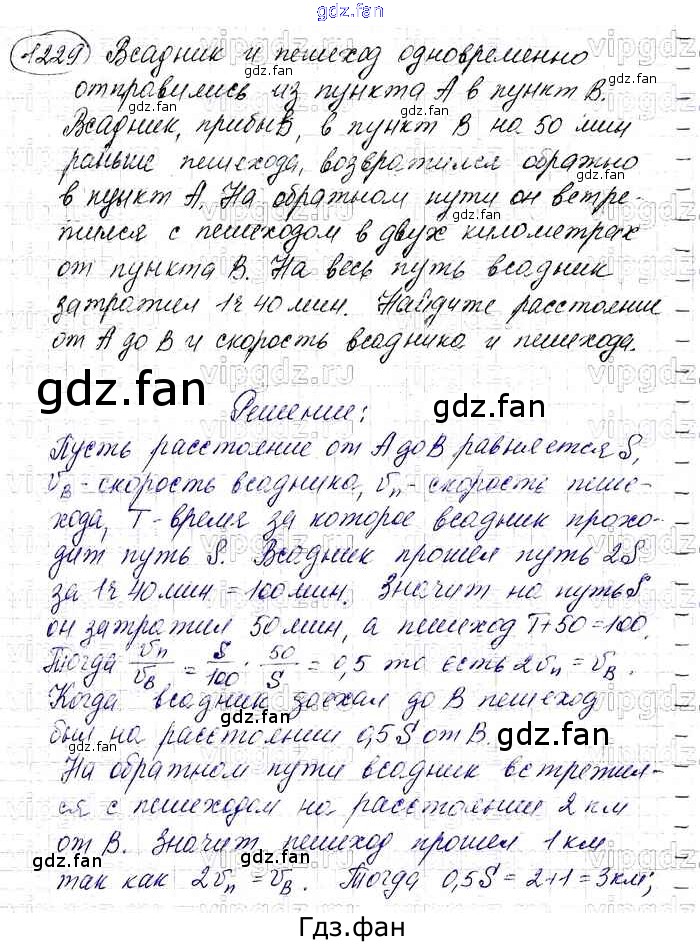 gdz.fan
1229) Всадник и пешеход одновременно
отправились из пункта А в пункт В.
Всадник, прибыв, в пункт В на 50 мин
раньше пешехода, возвратился обратно
в пункт А. На обратном пути он встре-
тился с пешеходом в двух километрах
от пункта В. На весь путь всадник
затратил 1ч 40 мин. Найдите расстояние
от А до В и скорость всадника и пешехода.
Решение:
Пусть расстояние от А до В равняется S,
Vв - скорость всадника, Vп - скорость пеше-
хода, T - время за которое всадник прохо-
дит путь S. Всадник прошел путь 2S
за 1ч 40 мин = 100 мин. Значит на путь S
он затратил 50 мин, а пешеход T+50=100.
Тогда Vп/Vв = S/100 · 50/S = 0,5 то есть 2Vп = Vв.
Когда всадник доехал до В пешеход
был на расстоянии 0,5S от В.
На обратном пути всадник встретил-
ся с пешеходом на расстоянии 2 км
от В. Значит пешеход прошел 1 км
так как 2Vп = Vв. Тогда 0,5S = 2+1 = 3км;
Гдз.фан